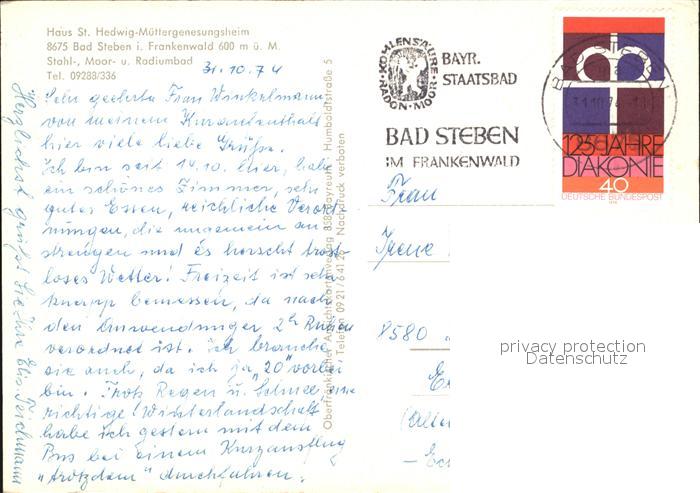 Haus St. Hedwig-Müttergenesungsheim
8675 Bad Steben i. Frankenwald 600 m ü. M.
Stahl-, Moor- u. Radiumbad
Tel. 09288/336
31.10.74
Sehr geehrte Frau Winkelmann,
von meinem Kuraufenthalt
hier viele liebe Grüße.
Ich bin seit 14.10. hier, habe
ein schönes Zimmer, sehr
gutes Essen, reichliche Verord
nungen, die ungemein an
strengen und es herscht trost
loses Wetter! Freizeit ist sehr
knapp bemessen, da nach
den Anwendungen 2h Ruhen
verordnet ist. Ich brauche
sie auch, da ich ja "20" vorbei
bin. Trotz Regen u. Schnee
richtige Winterlandschaft
habe ich gestern mit dem
Bus bei einem Kurzausflug
"trotzdem" durchfahren.
Herzlichst grüßt Sie Ihre Elis. Teichmann
Oberfränkischer Ansichtskartenverlag 858 Bayreuth Humboldtstraße 5
Telefon 0921/64126 Nachdruck verboten
KOHLENSÄURE
RADON-MOOR
BAYR.
STAATSBAD
BAD STEBEN
IM FRANKENWALD
31.10.74
125 JAHRE
DIAKONIE
40
DEUTSCHE BUNDESPOST
Frau
Irene
8580
privacy protection
Datenschutz